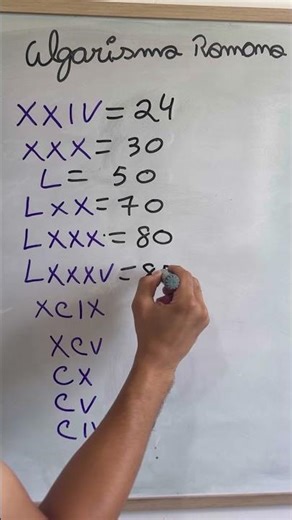 Algarismo Romano
XXIV = 24
XXX = 30
L = 50
LXX = 70
LXXX = 80
LXXXV = 8
XCIX
XCV
CX
CV